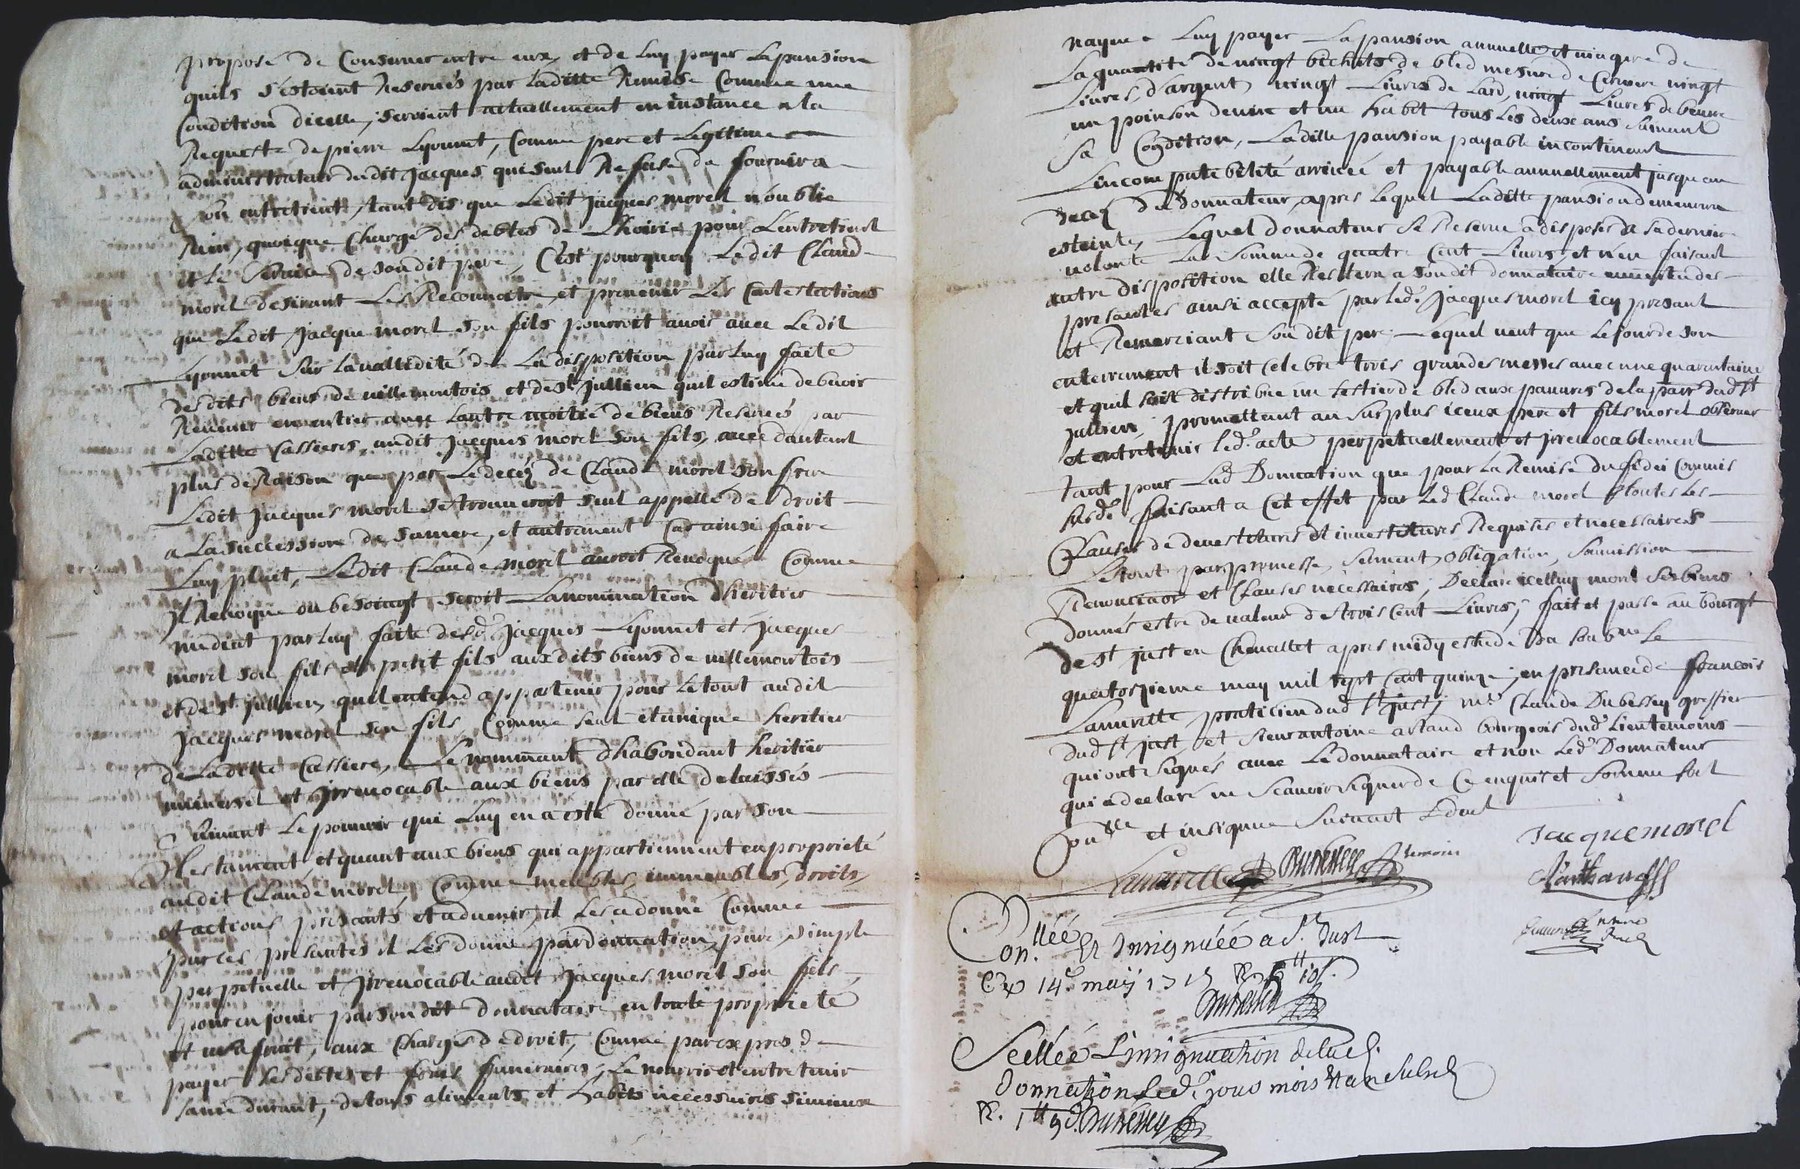 propose de Consumer entre eux, et de luy payer la pansion
quils s'estoient Reservés par laditte Remise Comme une
Condition dicelle, seroient actuellement en instance a la
Requeste de pierre Lyonnet, Comme pere et legitime
administrateur dudit Jacques qui seul Refuse de fournir a
son entretient, tant dis que ledit Jacques morel n'oublie
Rien, quoique Chargé des debtes de L'hoirie pour L'entretient
et le service de son dit pere, C'est pourquoy ledit Claude
morel desirant les Reconnoitre, et prevenir les Contestations
que ledit Jacque morel son fils pourroit avoir avec ledit
Lyonnet sur la validité de la disposition par luy faite
desdits biens de villemontois et de St Jullien quil estime devoir
Revenir en entier avec lautre moitié de biens Reservés par
laditte Cassiere, audit Jacques morel son fils, avec dautant
plus de Raison que par le decez de Claude morel son frere
Ledit Jacques morel se trouveroit seul appellé de droit
a la succession de sa mere, et autrement Car ainsi faire
luy plait, Ledit Claude morel auroit Revoqué Comme
Il Revoque ou besoingt seroit la nomination d'heritier
mediat par luy faite desd. Jacques Lyonnet et Jacques
morel son fils et petit fils auxdits biens de villemontois
et de St Jullien, quil entend appartenir pour le tout audit
Jacques morel son fils Comme seul et unique heritier
de laditte Cassiere, Le nommant d'habondant heritier
universel et Irrevocable aux biens par elle delaissés
suivant le pouvoir qui luy en a esté donné par son
testament, et quant aux biens qui appartiennent en propriété
audit Claude morel Comme meubles, immeubles, droits,
et actions presents et advenir, il les a donné Comme
par ces presantes il les donne par donnation pure, simple
perpetuelle et Irrevocable audit Jacques morel son fils,
pour en jouir par son dit donnataire en toute propriété
et usufruit, aux Charges de droit, Comme par expres de
payer ses debtes et frais funeraires, le nourrir et entretenir
sa vie durant, de tous aliments et habits necessaires si mieux
n'ayme luy payer la pansion annuelle et viagere de
la quantité de vingt bichets de bled mesure de Cervere vingt
Livres d'argent, vingt Livres de lard, vingt Livres de beurre
un poinson de vin et un habit tous les deux ans suivant
sa Condition, Laditte pansion payable incontinent
Lincompatebilité arrivée et payable annuellement jusqu'au
decez du donnateur, apres lequel Laditte pansion demeurera
esteinte, Lequel donnateur se Reserve a disposer de sa derniere
volonté la somme de quatre Cent Livres, et n'en faisant
autre disposition elle Restera a son dit donnataire
presantes ainsi accepté par led. Jacques morel icy presant
et Remerciant son dit pere, Lequel veut que le jour de son
enterrement il soit Celebre trois grandes messes avec une quarantaine
et quil soit distribué un sestier de bled aux pauvres de la parr. dud. St
Jullien, promettant au surplus iceux pere et fils morel observer
et entretenir led. acte perpetuellement et Irrevocablement
tant pour lad Donnation que pour la Remise du fidei Commis
susd. faisant a Cet effet par led Claude morel toutes les
Clauses de devestitures et investitures Requises et necessaires
Le tout par promesse, serment, obligation, soumission
Renonciaons et Clauses necessaires, Declare icelluy morel ses biens
donnés estre de valeur de trois Cent Livres, fait et passé au bourgt
de St just en Chevallet apres midy estude du sous.ne le
quatorzieme may mil sept cent quinze, en presance de francois
Laurette praticien dud St just, mr. Claude Dubessey greffier
dud St just, et sieur antoine artaud bourgeois dud. Lieu temoins
qui ont signés avec le donnataire et non led. Donnateur
qui a declaré ne scavoir signer de Ce enquis et sommé soit
Con.llé et insignué suivant L'edict
Jacque morel
Laurette Dubessey temoin
Con.llée Et Insignuée a St. Just
Ce 14e. may 1715 R. 5tt 10s.
Dubessey
Scellée L'insignuation de lad.
donnation led. jour mois Et an susd.
R. 1tt 9d. Dubessey